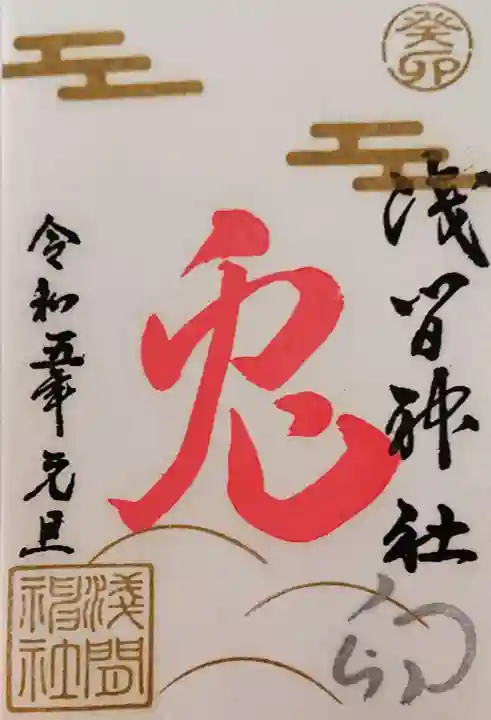 癸卯
浅間神社
兎
卯
令和五年元旦
淺間
神社